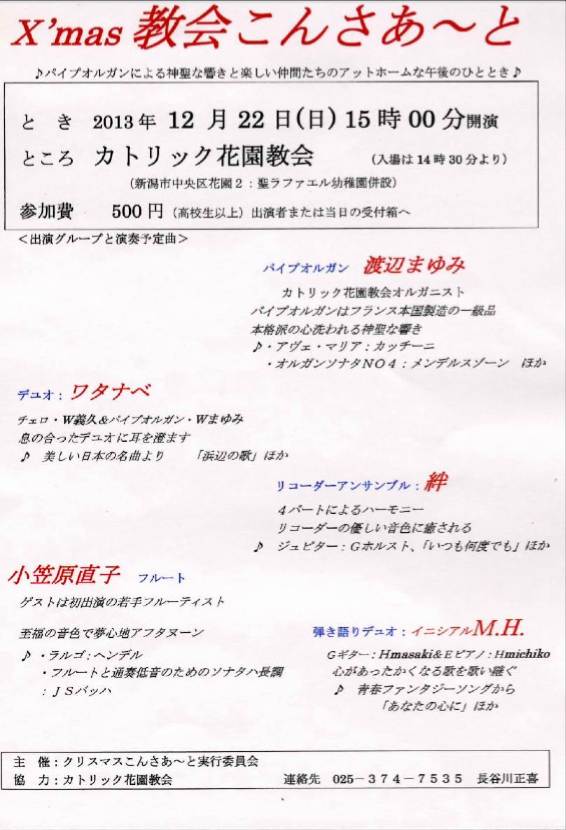 X'mas 教会こんさあ～と
♪パイプオルガンによる神聖な響きと楽しい仲間たちのアットホームな午後のひととき♪
と き 2013年 12 月 22日(日) 15時 00分開演
ところ カトリック花園教会 (入場は14時30分より)
(新潟市中央区花園2：聖ラファエル幼稚園併設)
参加費 500円 (高校生以上) 出演者または当日の受付箱へ
＜出演グループと演奏予定曲＞
パイプオルガン 渡辺まゆみ
カトリック花園教会オルガニスト
パイプオルガンはフランス本国製造の一級品
本格派の心洗われる神聖な響き
♪・アヴェ・マリア：カッチーニ
・オルガンソナタＮＯ４：メンデルスゾーン ほか
デュオ：ワタナベ
チェロ・W義久＆パイプオルガン・Wまゆみ
息の合ったデュオに耳を澄ます
♪ 美しい日本の名曲より 「浜辺の歌」ほか
リコーダーアンサンブル：絆
４パートによるハーモニー
リコーダーの優しい音色に癒される
♪ ジュピター：Gホルスト、「いつも何度でも」ほか
小笠原直子 フルート
ゲストは初出演の若手フルーティスト
至福の音色で夢心地アフタヌーン
♪・ラルゴ：ヘンデル
・フルートと通奏低音のためのソナタハ長調
：ＪＳバッハ
弾き語りデュオ：イニシアルM.H.
Gギター：Hmasaki＆Eピアノ：Hmichiko
心があったかくなる歌を歌い継ぐ
♪ 青春ファンタジーソングから
「あなたの心に」ほか
主 催：クリスマスこんさあ～と実行委員会
協 力：カトリック花園教会 連絡先 025－374－7535 長谷川正喜